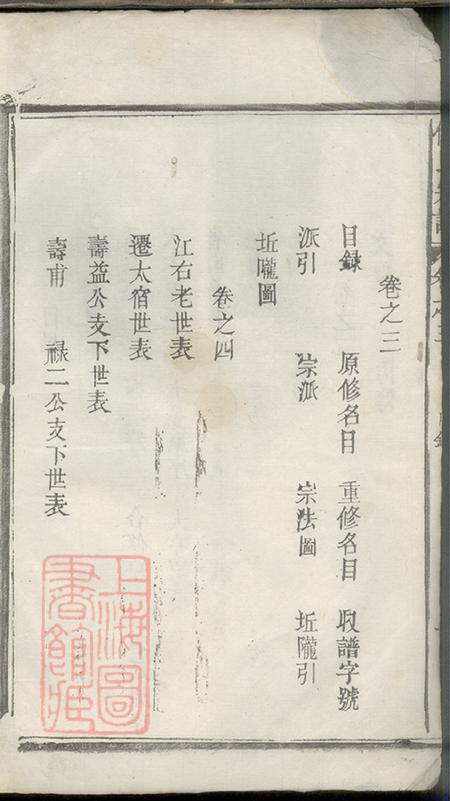 卷之三
目錄 原修名目 重修名目 収譜字號
派引 宗派 宗法圖 坵隴引
坵隴圖
卷之四
江右老世表
遷太宿世表
壽益公支下世表
壽甫 祿二公支下世表
上海圖書館藏